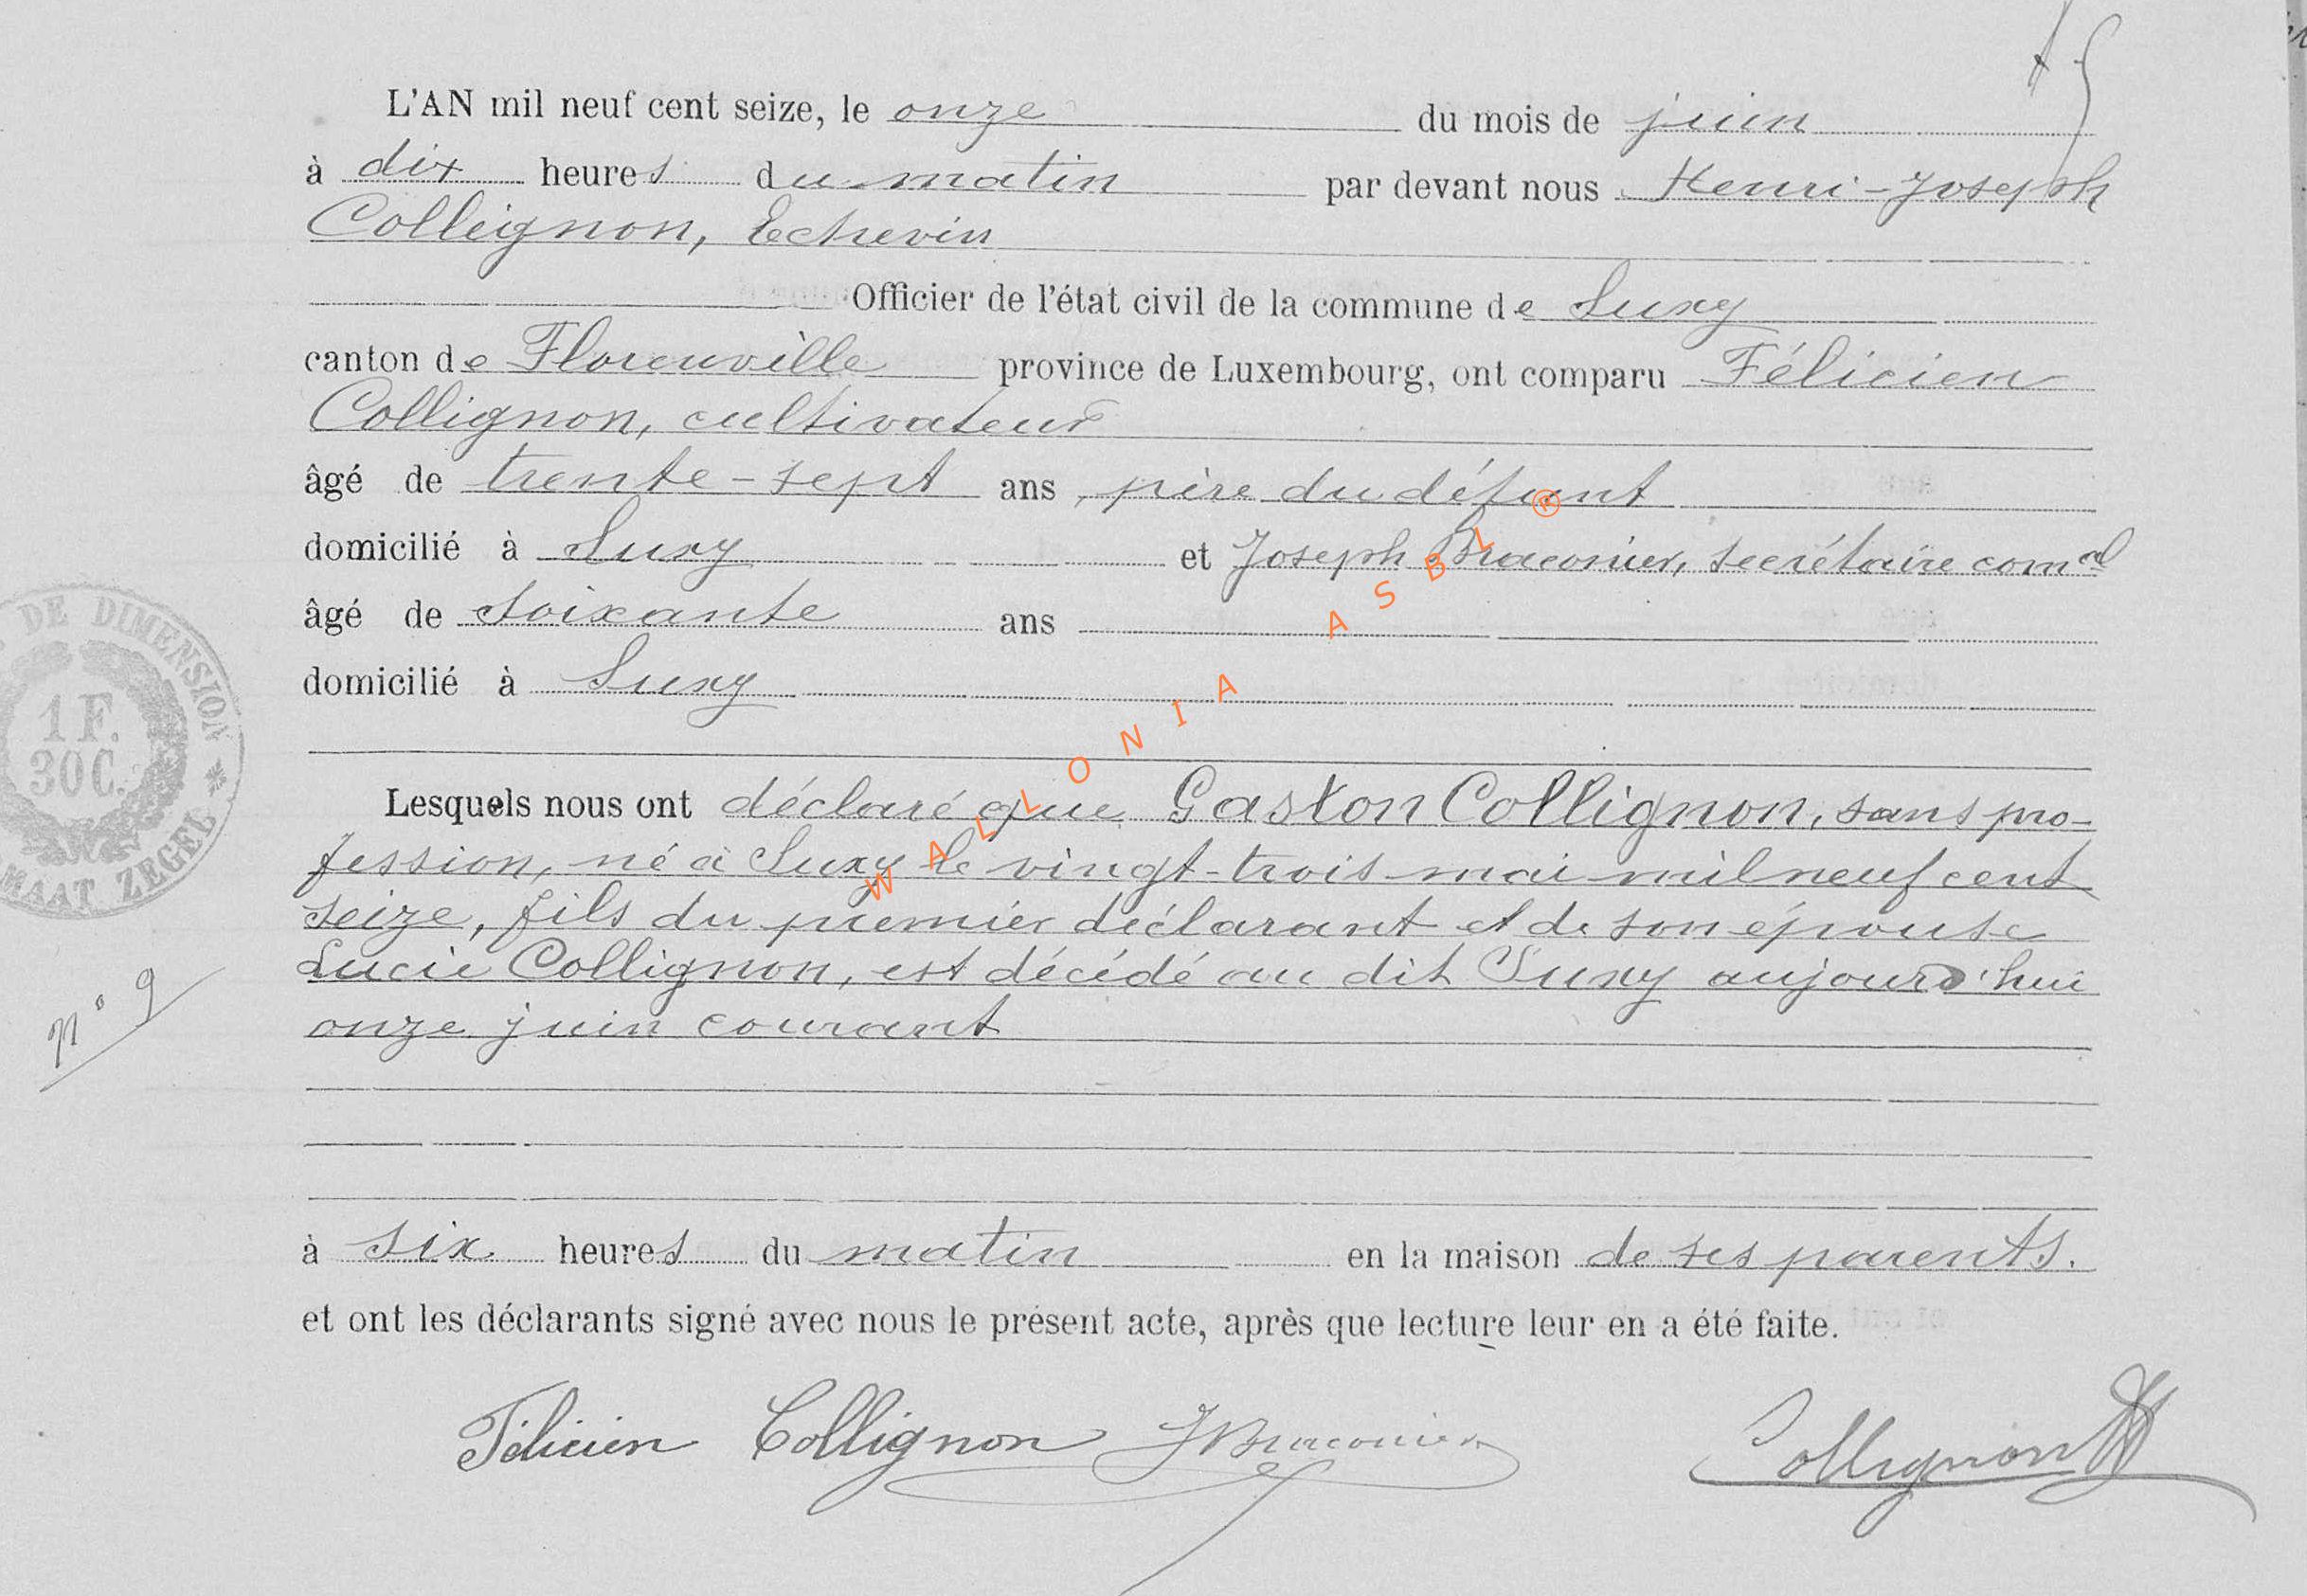 L'AN mil neuf cent seize, le onze du mois de juin
à dix heures du matin par devant nous Henri-Joseph
Colleignon, Echevin
Officier de l'état civil de la commune de Suxy
canton de Florenville province de Luxembourg, ont comparu Félicien
Collignon, cultivateur
âgé de trente-sept ans, père du défunt
domicilié à Suxy et Joseph Braconier, secrétaire comal
âgé de soixante ans
domicilié à Suxy
Lesquels nous ont déclaré que Gaston Collignon, sans pro-
fession, né à Suxy le vingt-trois mai mil neuf cent
seize, fils du premier déclarant et de son épouse
Lucie Collignon, est décédé au dit Suxy aujourd'hui
onze juin courant
à six heures du matin en la maison de ses parents.
et ont les déclarants signé avec nous le présent acte, après que lecture leur en a été faite.
Félicien Collignon JBraconier Collignon
n° 9
DE DIMENSION
1 F.
30 C.
MAAT ZEGEL
WALLONIA ASBL ®